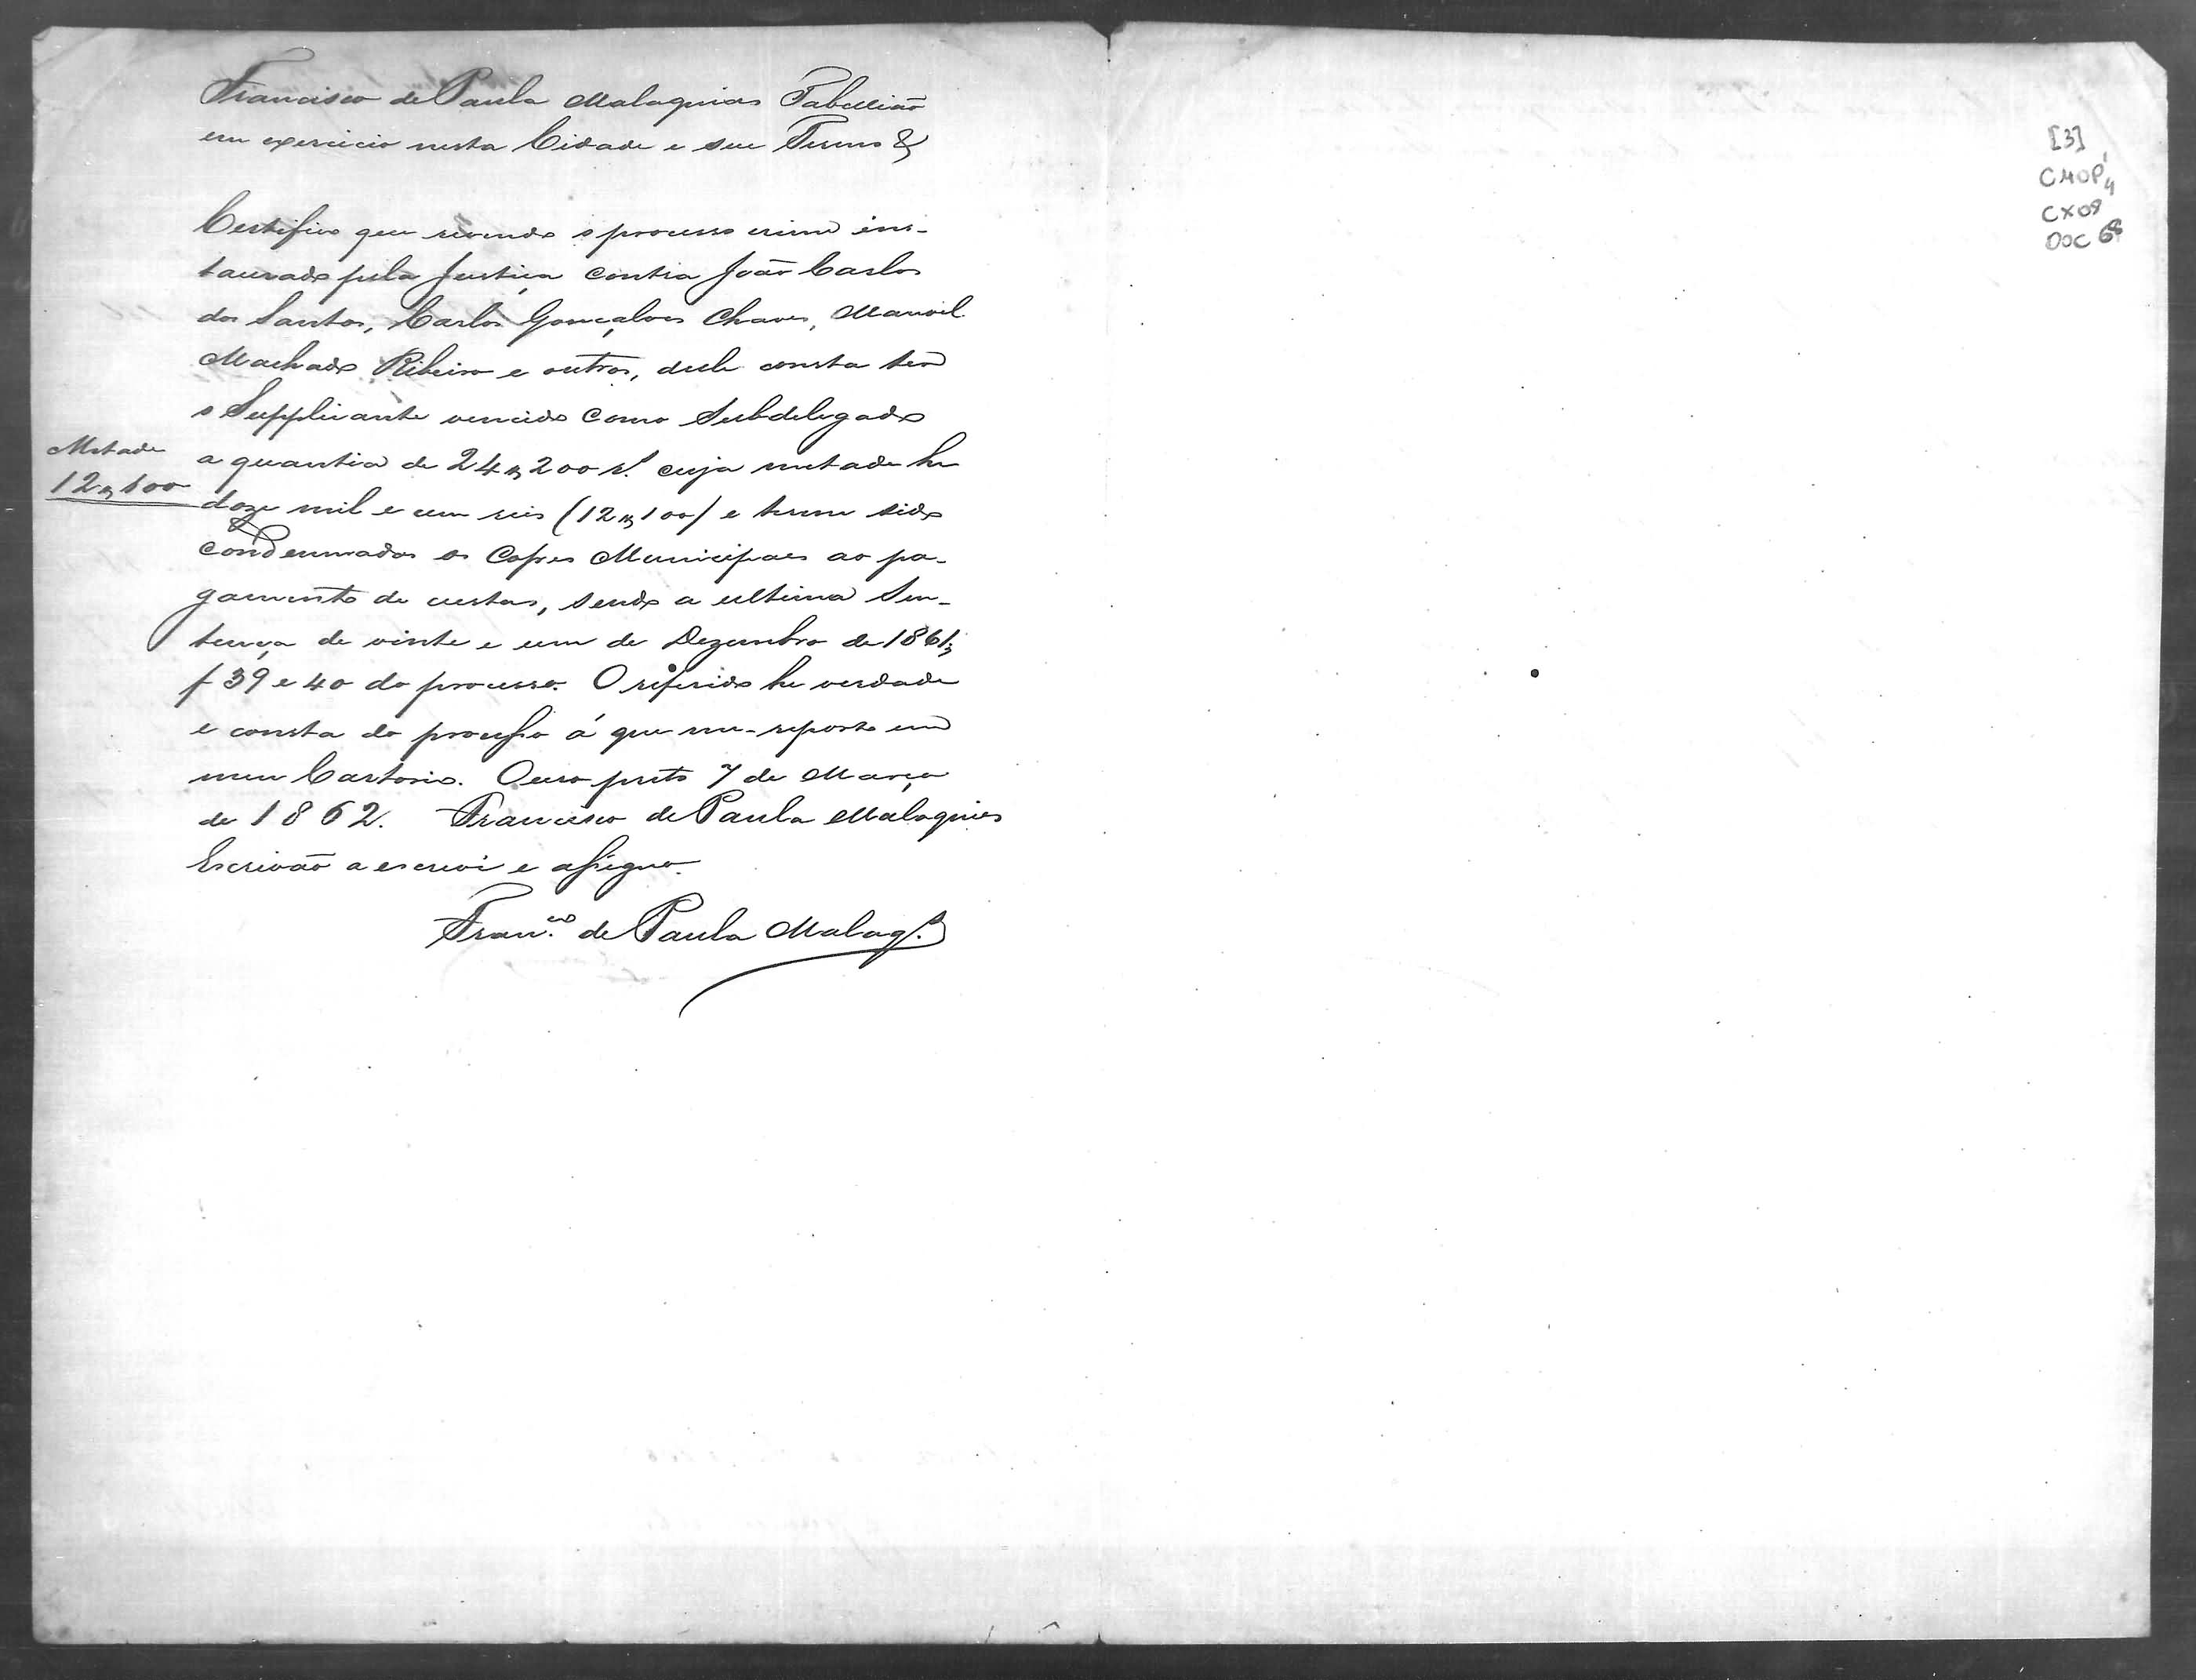 Francisco de Paula Malaquias Tabellião
em exercicio nesta Cidade e seu Termo &
Certifico que revendo o processo crime ins-
taurado pela Justiça contra João Carlos
dos Santos, Carlos Gonçalves Chaves, Manoel
Machado Ribeiro e outros, delle consta ter
o Supplicante vencido como Subdelegado
Metade
12$100
a quantia de 24$200 rs. cuja metade he
doze mil e cem reis (12$100) e terem sido
condemnados os Cofres Municipaes ao pa-
gamento de custas, sendo a ultima Sen-
tença de vinte e um de Dezembro de 1861,
f 39 e 40 do processo. O referido he verdade
e consta do processo á que me-reporto em
meu Cartorio. Ouro preto 7 de Março
de 1862. Francisco de Paula Malaquias
Escrivão a escrevi e assigno.
Fran.co de Paula Malaq.s
[3]
CMOP
CX 08
DOC 68